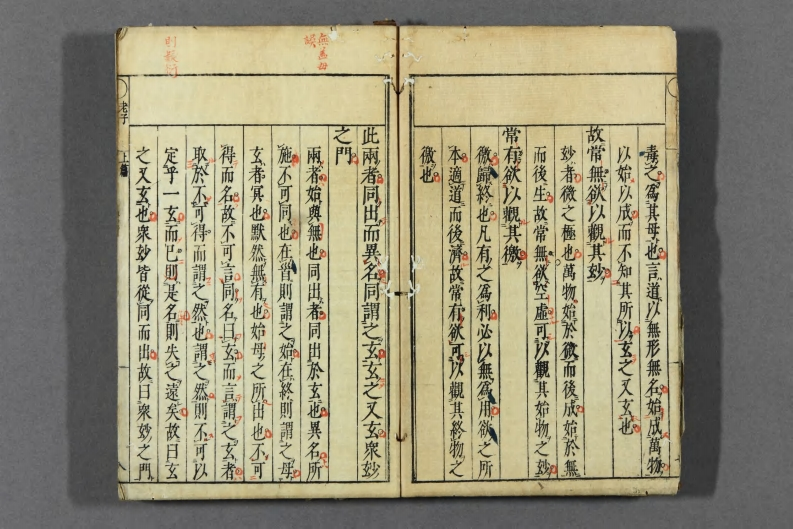 毒之爲其母也言道以無形無名始成萬物
以始以成而不知其所以玄之又玄也
故常無欲以觀其妙
妙者微之極也萬物始於微而後成始於無
而後生故常無欲空虛可以觀其始物之妙
常有欲以觀其徼
徼歸終也凡有之爲利必以無爲用欲之所
本適道而後濟故常有欲可以觀其終物之
徼也
此兩者同出而異名同謂之玄玄之又玄衆妙
之門
兩者始與無也同出者同出於玄也異名所
施不可同也在首則謂之始在終則謂之母
玄者冥也默然無有也始母之所出也不可
得而名故不可言同名曰玄而言謂之玄者
取於不可得而謂之然也謂之然則不可以
定乎一玄而已則是名則失之遠矣故曰玄
之又玄也衆妙皆從同而出故曰衆妙之門
老子
上篇
無當母
誤
則疑衍